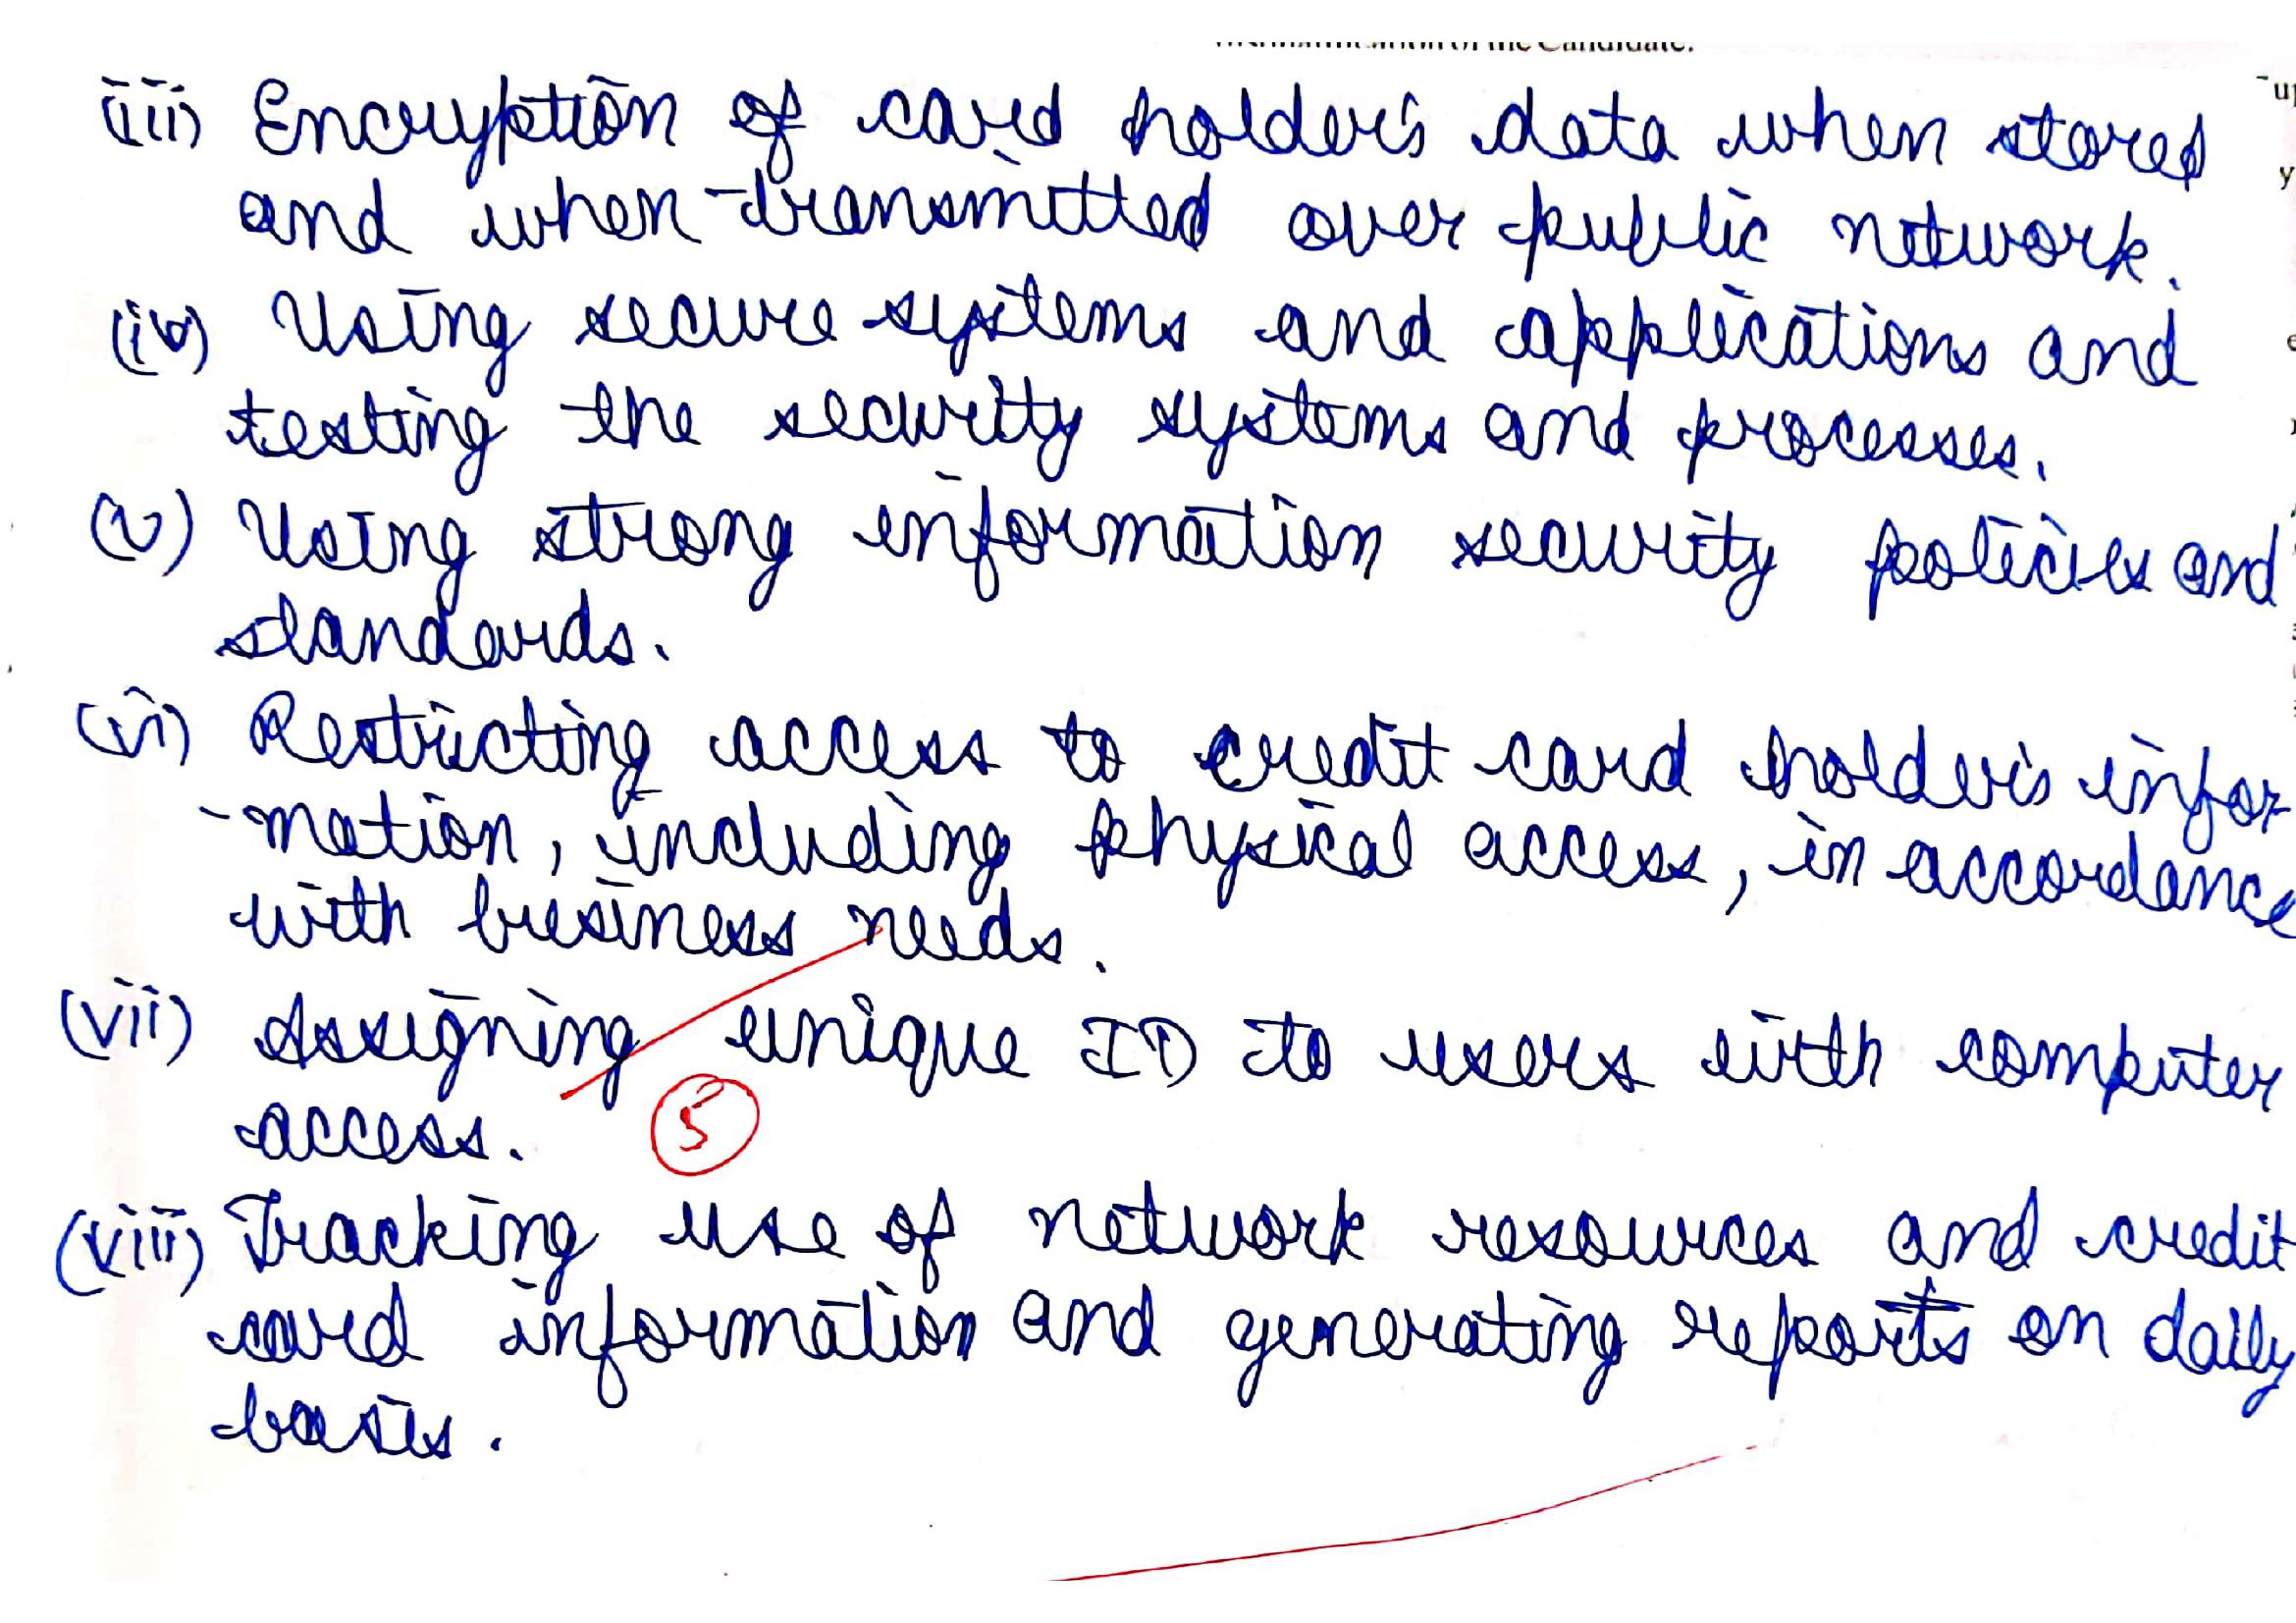 of the Candidate.
iii) Encryption of card holder's data when stored
and when transmitted over public network.
(iv) Using secure systems and applications and
testing the security systems and processes.
(v) Using strong information security policies and
standards.
(vi) Restricting access to credit card holder's infor
-mation, including physical access, in accordance
with business needs.
(vii) Assigning unique ID to users with computer
access.
5
(viii) Tracking use of network resources and credit
card information and generating reports on daily
basis.